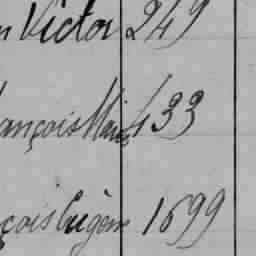 n Victor 249
ançois Marie 433
çois Eugène 1699